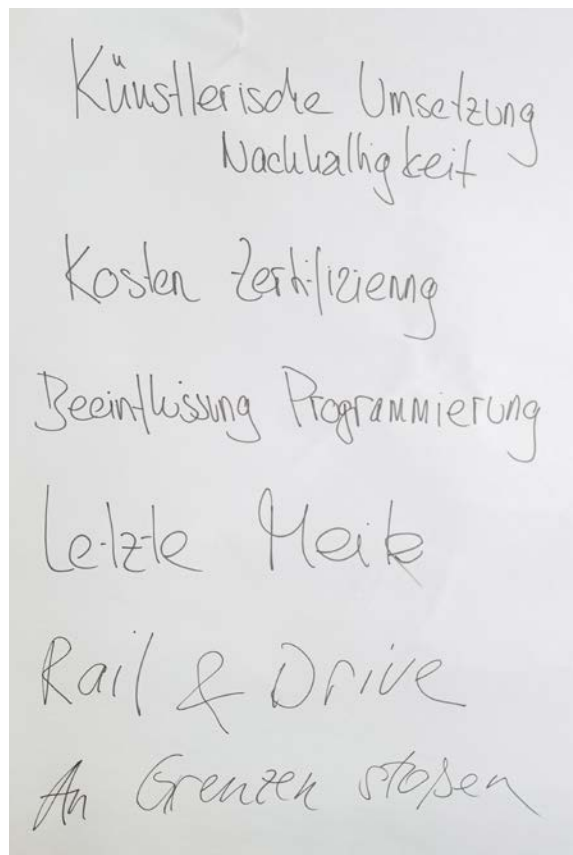 Künstlerische Umsetzung
Nachhaltigkeit
Kosten Zertifizierung
Beeinflussung Programmierung
Letzte Meile
Rail & Drive
An Grenzen stoßen